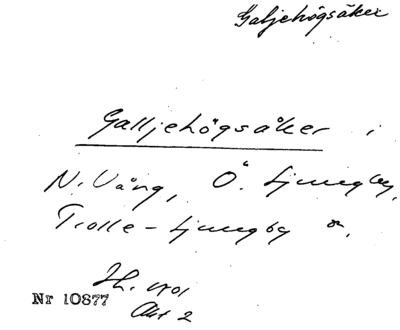 Galjehögsåker
Galljehögsåker i
N. Vång, Ö. Ljungby,
Trolle-Ljungby
Nr 10877
Akt 2